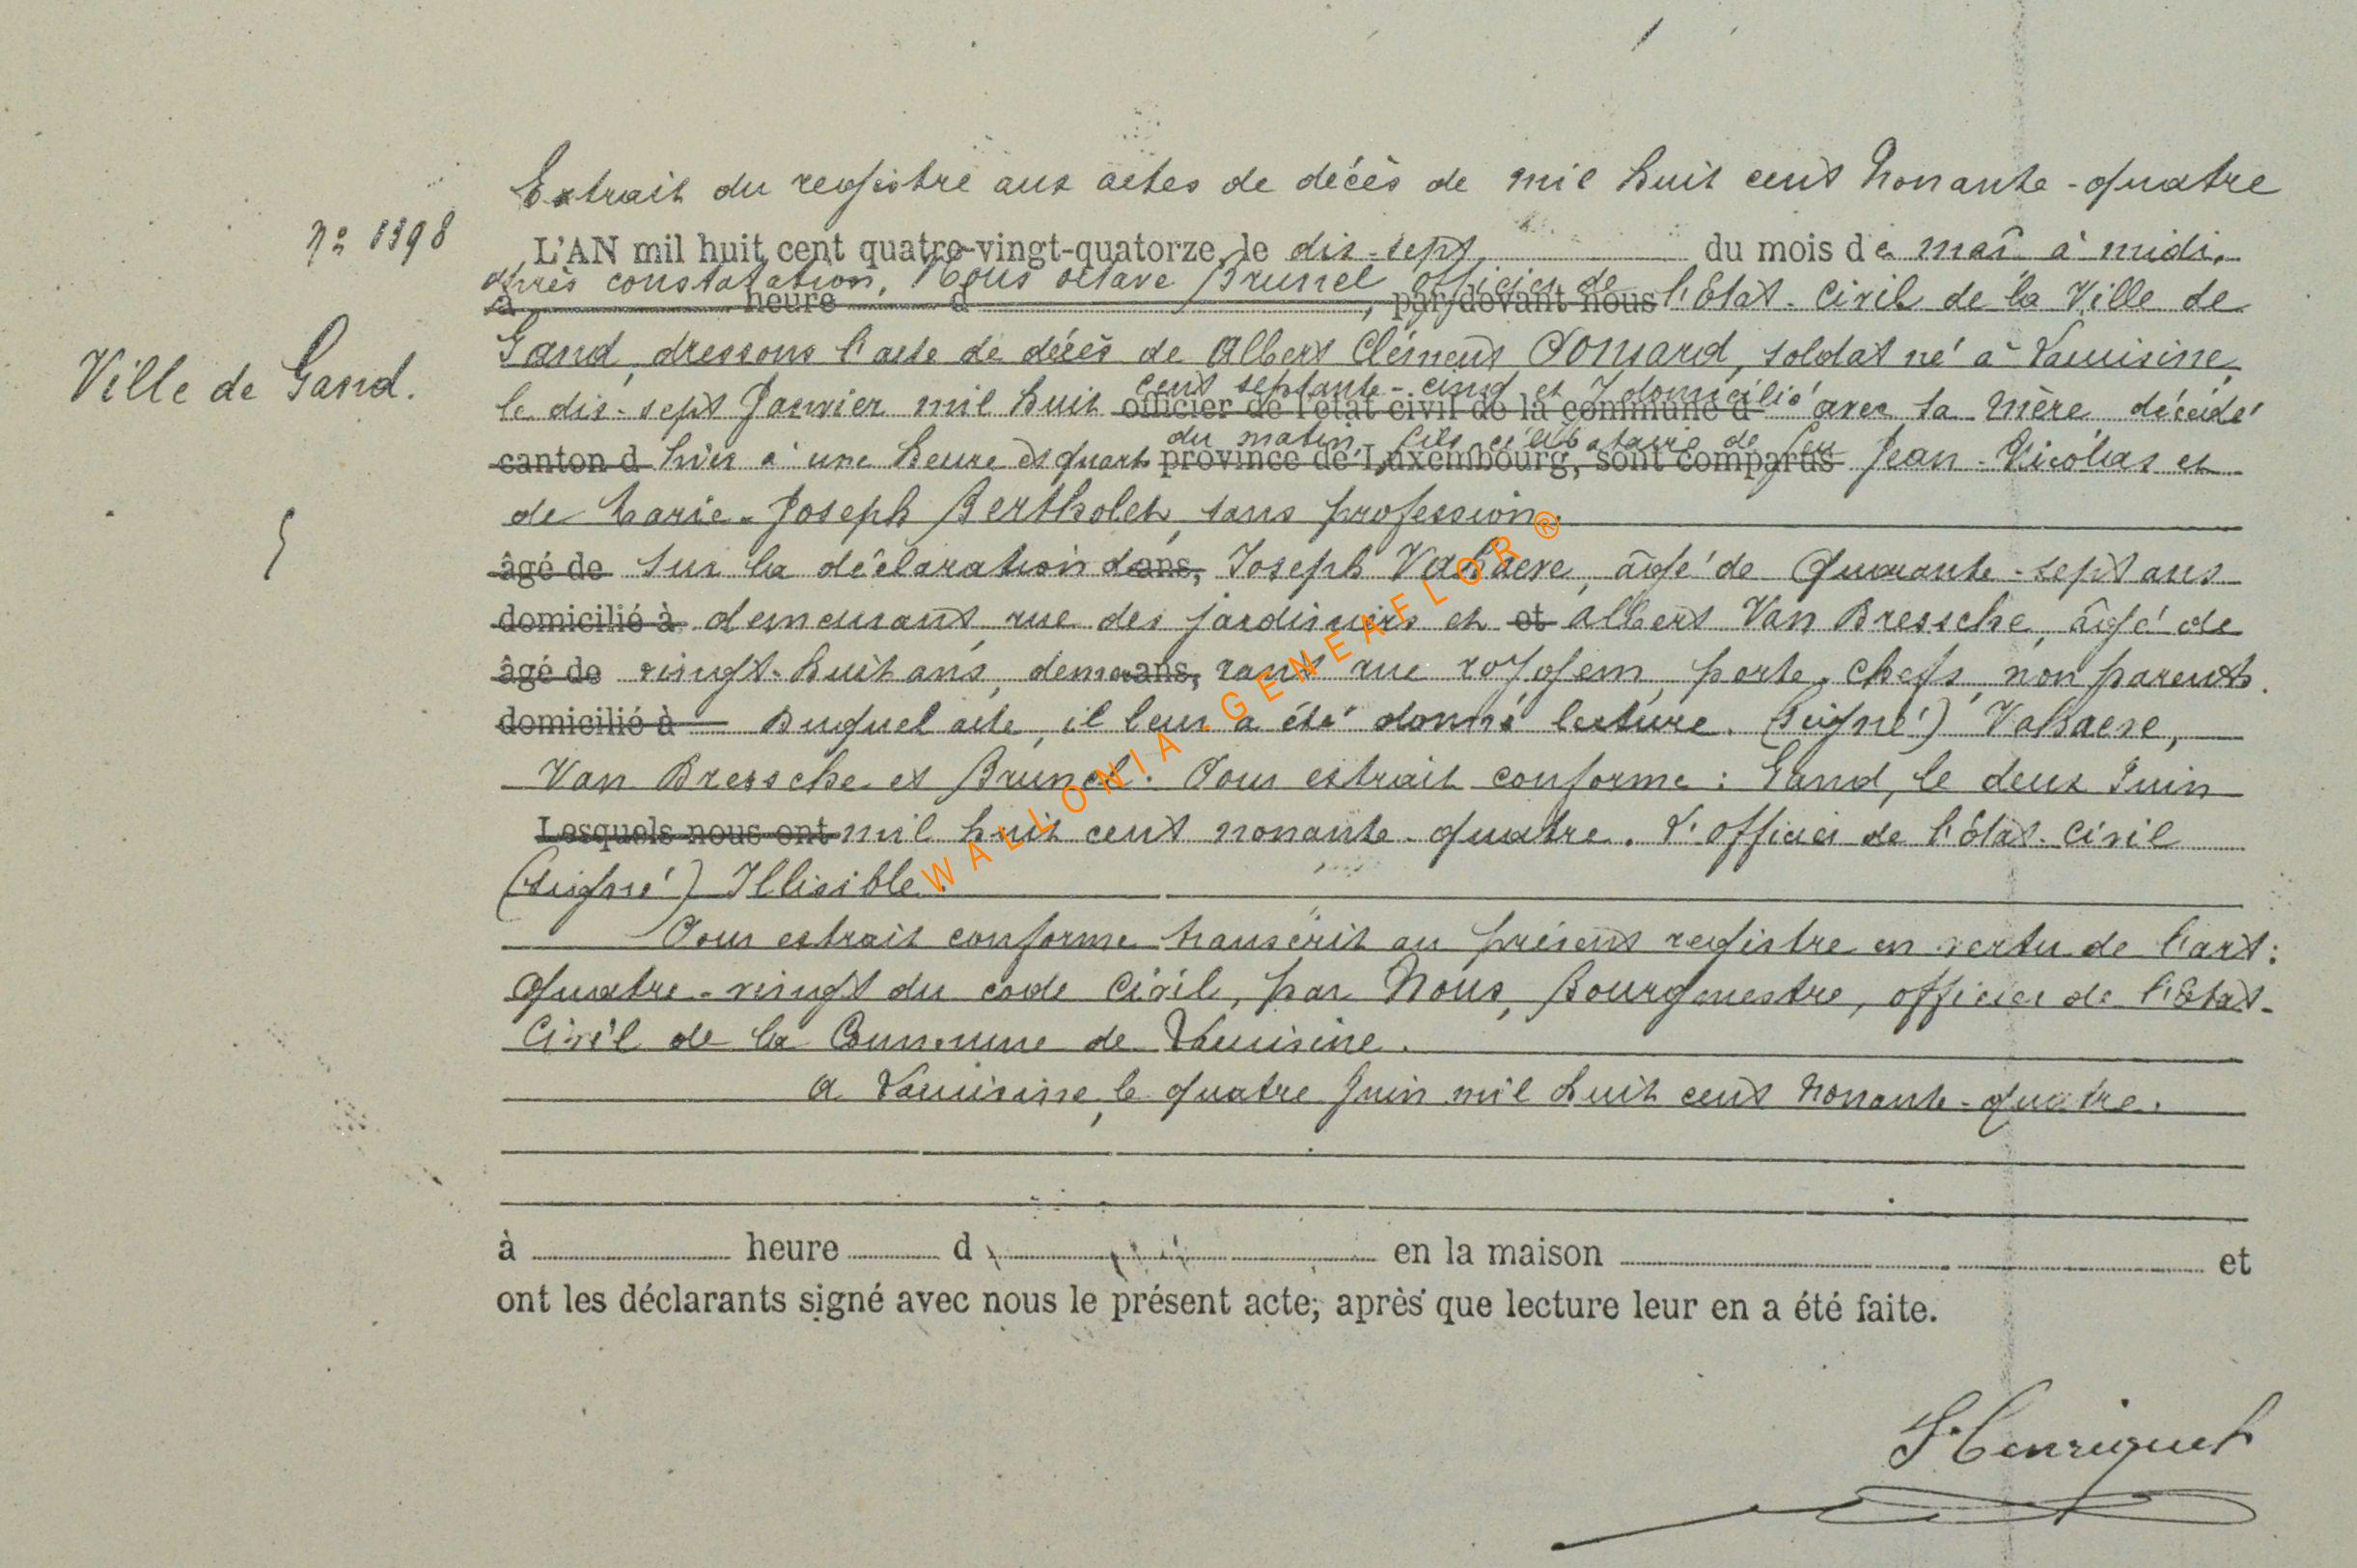 Extrait du registre aux actes de décès de mil huit cent nonante-quatre
n° 1398
L'AN mil huit cent quatre-vingt-quatorze, le dix-sept du mois de mai à midi,
après constatation, Nous octave Brunel officier de
à heure d , par devant nous l'Etat-Civil de la Ville de
Ville de Gand.
Gand, dressons l'acte de décès de Albert Clément Ponsard, soldat né à Lacuisine,
cent septante-cinq et y domicilié
le dix-sept Janvier mil huit officier de l'état civil de la commune d avec sa mère, décédé
du matin, fils célibataire de feu
canton d hier à une heure et quart province de Luxembourg, sont comparus Jean-Nicolas et
de Marie-Joseph Bertholet, sans profession.
âgé de sur la déclaration d ans, Joseph Vakaere, âgé de quarante-sept ans
domicilié à demeurant rue des jardiniers et et Albert Van Bressche, âgé de
âgé de vingt-huit ans, demeu ans, rant rue royghem, porte-chefs, non parents.
domicilié à Duquel acte, il leur a été donné lecture. (Signé) Vakaere,
Van Bressche et Brunel. Pour extrait conforme : Gand, le deux Juin
Lesquels nous ont mil huit cent nonante-quatre. L'officier de l'état-civil
(signé) Illisible.
Pour extrait conforme transcrit au présent registre en vertu de l'art:
quatre-vingt du code civil, par Nous, Bourgmestre, officier de l'Etat-
Civil de la Commune de Lacuisine.
A Lacuisine, le quatre Juin mil huit cent nonante-quatre.
à heure d en la maison et
ont les déclarants signé avec nous le présent acte, après que lecture leur en a été faite.
Henriquet
WALLONIA - GENEAFLOR ®